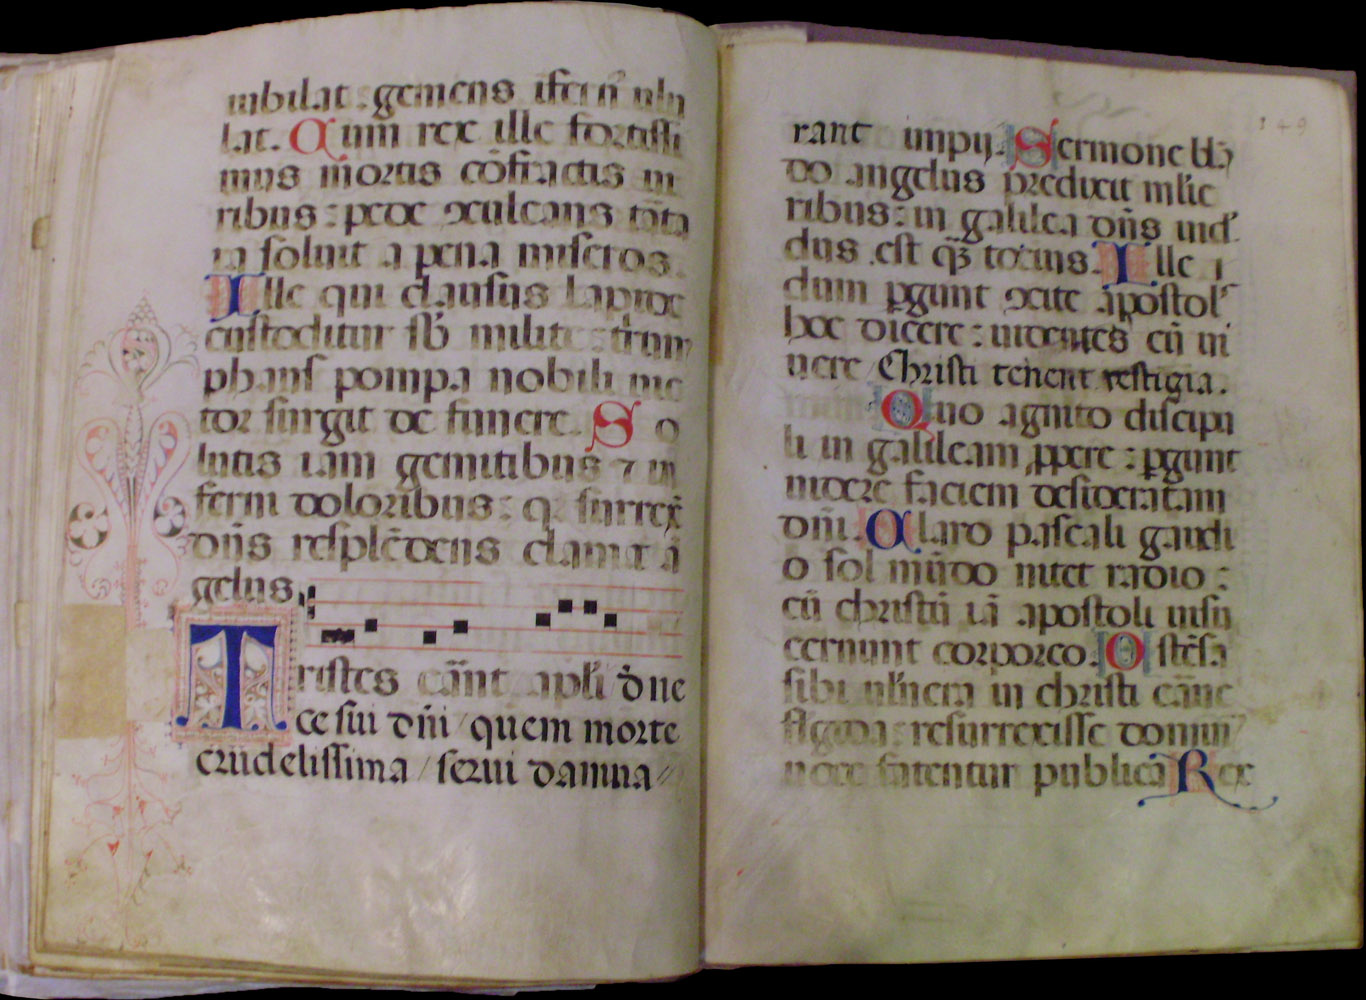 iubilat : gemens ifern̄ ulu
lat. Cum rex ille fortissi
mus mortis cōfractis ui
ribus : pede ɔculcans tāta
ra soluit a pena miseros.
Ille qui clausus lapide
custoditur sƀ milite : triun
phans pompa nobili uic
tor surgit de funere. So
lutis iam gemitibus ⁊ in
ferni doloribus : q surrex̄
dn̄s resplēdens clamat ā
gelus.
Tristes erāt apl̓i de ne
ce sui dn̄i quem morte
crudelissima / serui damna//
149
rant impij. Sermone blā
do angelus predixit mul̓ie
ribus : in galilea dn̄s uid̓
dus est qȝ totius. Ille ı
dum ꝑgunt ɔcite apostol̓
hoc dicere : uidentes eū ui
uere Christi tenent vestigia.
Quo agnito discipu
li in galileam ꝓpere : ꝑgunt
uidere faciem desideratam
dn̄i. Claro pascali gaudi
o sol mūdo nitet radio :
cū christū iā apostoli uisu
cernunt corporeo. Ostēsa
sibi uul̓nera in christi carne
fulgida : resurrexisse dominū
uoce fatentur publica Rex